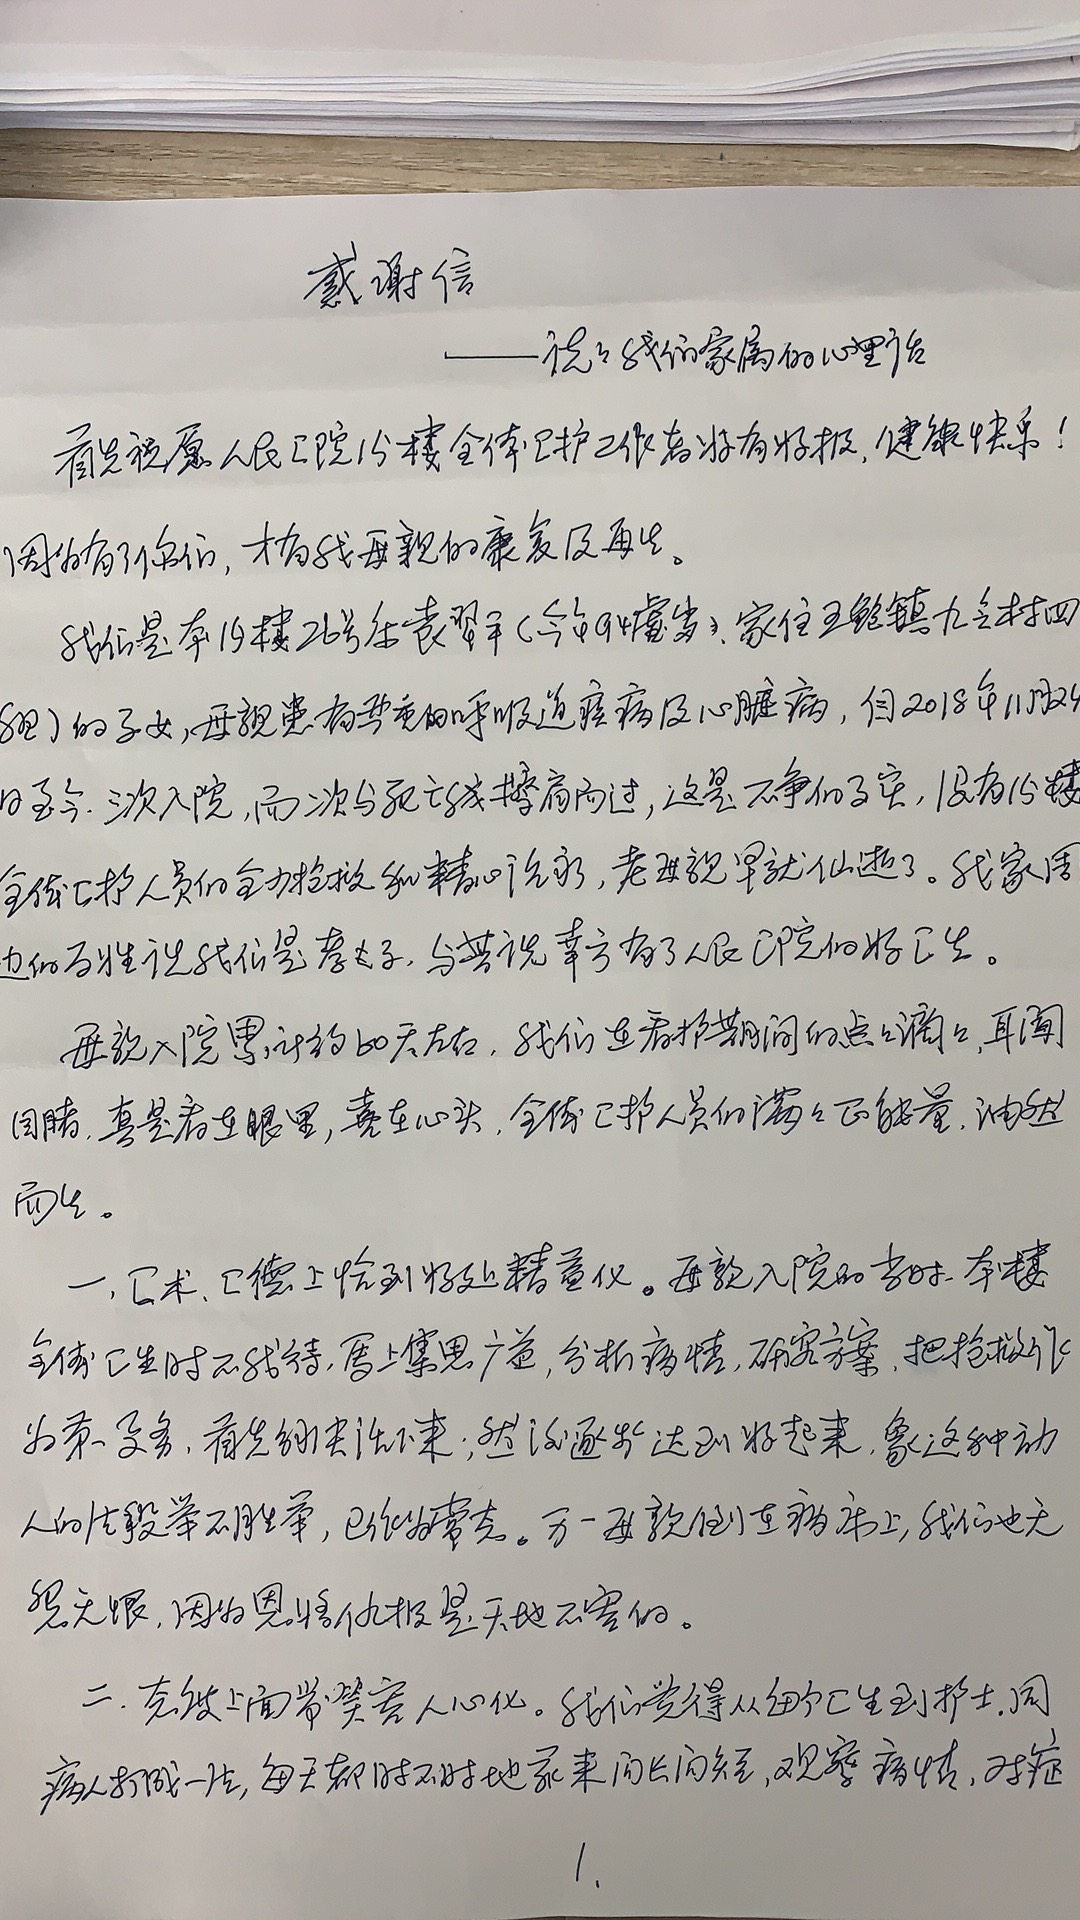 感谢信
——说说我们家属的心里话
首先祝愿人民医院15楼全体医护工作者好有好报,健康快乐!
因为有了你们,才有我母亲的康复及再生。
我们是本15楼26号床袁翠平(今年94虚岁、家住王鲍镇九总村四
组)的子女,母亲患有严重的呼吸道疾病及心脏病,自2018年11月24
日至今.三次入院,而次与死亡线擦肩而过,这是不争的事实,没有15楼
全体医护人员的全力抢救和精心治疗,老母亲早就仙逝了。我家周
边的百姓说我们是孝子,与其说幸亏有了人民医院的好医生。
母亲入院累计约60天左右,我们在看护期间的点点滴滴,耳闻
目睹,真是看在眼里,喜在心头,全体医护人员们满满正能量,油然
而生。
一、医术、医德上恰到好处精益化。母亲入院的当时.本楼
全体医生时不我待,马上集思广益,分析病情,研究方案,把抢救作
为第一要务,首先细关活下来;然后逐步达到好起来,象这种动
人的片段举不胜举,已作为常态。万一母亲倒在病床上,我们也无
怨无恨,因为恩将仇报是天地不容的。
二.态度上面带笑容人心化。我们觉得从每个医生到护士.同
病人打成一片,每天都时不时地前来问长问短,观察病情,对症
1.